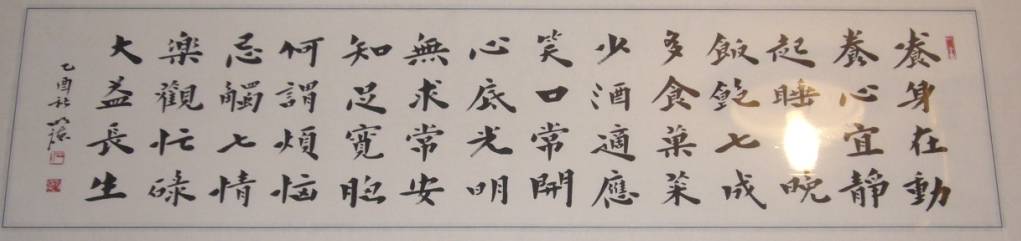 養身在動
養心宜靜
起睡晚
飯飽七成
多食菓菜
少酒適應
笑口常開
心底光明
無求常安
知足寬胸
何謂煩惱
忌觸七情
樂觀忙碌
大益長生
乙酉秋